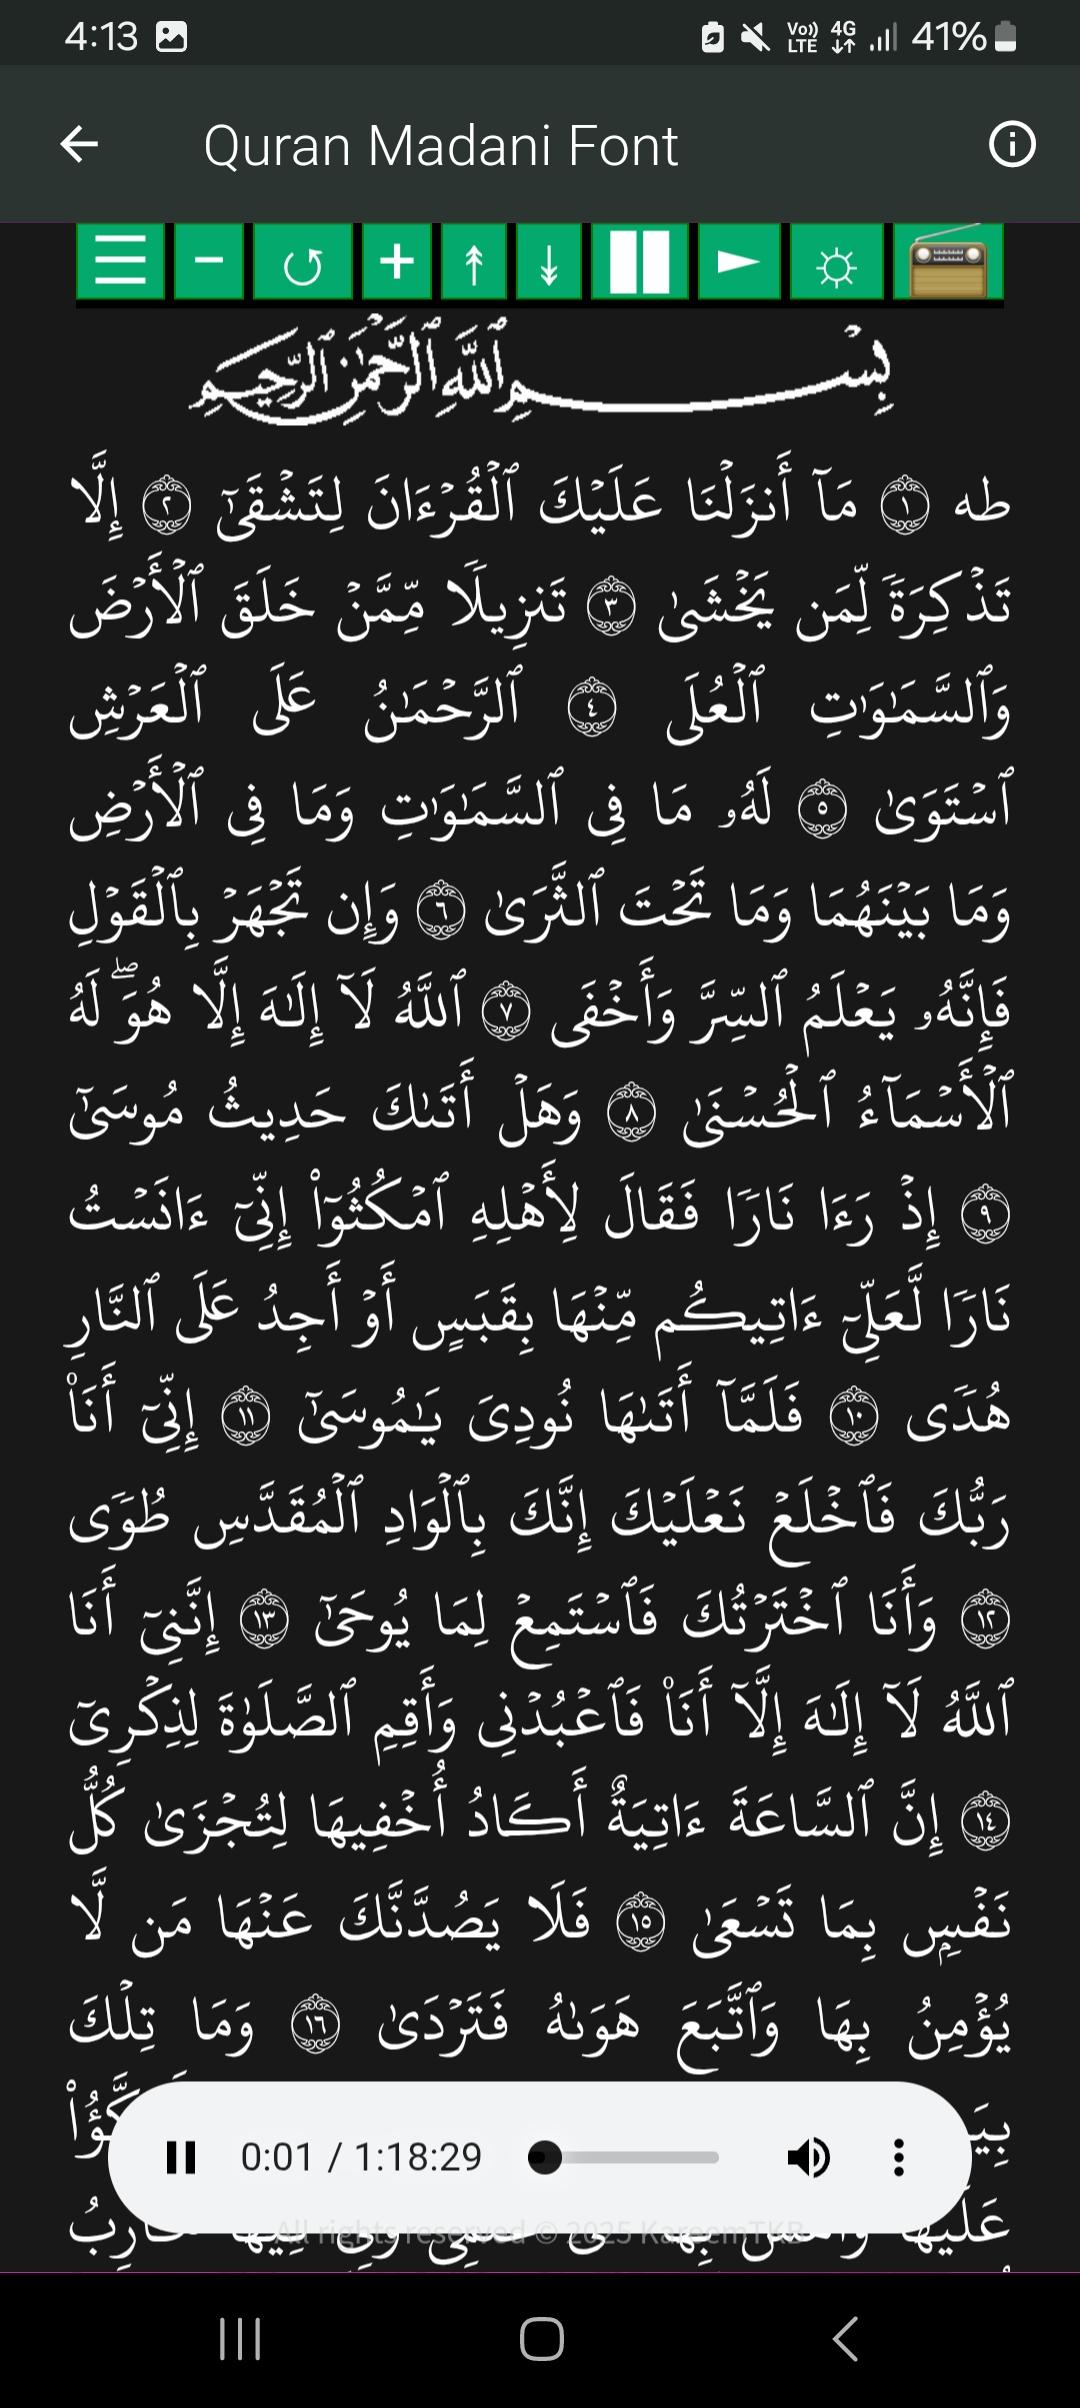 4:13 Vo)) LTE 4G 41%
Quran Madani Font
بِسْمِ ٱللَّهِ ٱلرَّحْمَٰنِ ٱلرَّحِيمِ
طه ١ مَآ أَنزَلْنَا عَلَيْكَ ٱلْقُرْءَانَ لِتَشْقَىٰٓ ٢ إِلَّا
تَذْكِرَةً لِّمَن يَخْشَىٰ ٣ تَنزِيلًا مِّمَّنْ خَلَقَ ٱلْأَرْضَ
وَٱلسَّمَٰوَٰتِ ٱلْعُلَى ٤ ٱلرَّحْمَٰنُ عَلَى ٱلْعَرْشِ
ٱسْتَوَىٰ ٥ لَهُۥ مَا فِى ٱلسَّمَٰوَٰتِ وَمَا فِى ٱلْأَرْضِ
وَمَا بَيْنَهُمَا وَمَا تَحْتَ ٱلثَّرَىٰ ٦ وَإِن تَجْهَرْ بِٱلْقَوْلِ
فَإِنَّهُۥ يَعْلَمُ ٱلسِّرَّ وَأَخْفَى ٧ ٱللَّهُ لَآ إِلَٰهَ إِلَّا هُوَۖ لَهُ
ٱلْأَسْمَآءُ ٱلْحُسْنَىٰ ٨ وَهَلْ أَتَىٰكَ حَدِيثُ مُوسَىٰٓ
٩ إِذْ رَءَا نَارًا فَقَالَ لِأَهْلِهِ ٱمْكُثُوٓا۟ إِنِّىٓ ءَانَسْتُ
نَارًا لَّعَلِّىٓ ءَاتِيكُم مِّنْهَا بِقَبَسٍ أَوْ أَجِدُ عَلَى ٱلنَّارِ
هُدًى ١٠ فَلَمَّآ أَتَىٰهَا نُودِىَ يَٰمُوسَىٰٓ ١١ إِنِّىٓ أَنَا۠
رَبُّكَ فَٱخْلَعْ نَعْلَيْكَ إِنَّكَ بِٱلْوَادِ ٱلْمُقَدَّسِ طُوًى
١٢ وَأَنَا ٱخْتَرْتُكَ فَٱسْتَمِعْ لِمَا يُوحَىٰٓ ١٣ إِنَّنِىٓ أَنَا
ٱللَّهُ لَآ إِلَٰهَ إِلَّآ أَنَا۠ فَٱعْبُدْنِى وَأَقِمِ ٱلصَّلَوٰةَ لِذِكْرِىٓ
١٤ إِنَّ ٱلسَّاعَةَ ءَاتِيَةٌ أَكَادُ أُخْفِيهَا لِتُجْزَىٰ كُلُّ
نَفْسٍۭ بِمَا تَسْعَىٰ ١٥ فَلَا يَصُدَّنَّكَ عَنْهَا مَن لَّا
يُؤْمِنُ بِهَا وَٱتَّبَعَ هَوَىٰهُ فَتَرْدَىٰ ١٦ وَمَا تِلْكَ
0:01 / 1:18:29
عَلَيْهَا
All rights reserved © 2025 KareemTKB